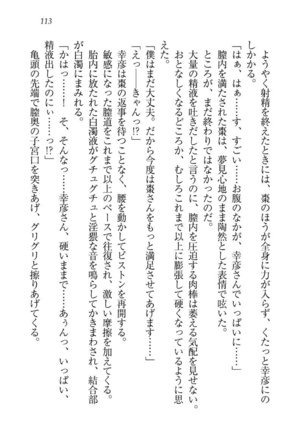 113
ようやく射精を終えたときには、棗のほうが全身に力が入らず、くたっと幸彦にの
しかかる。
「はぁ、はぁ……す、すごい……お腹のなかが、幸彦さんでいっぱいに……」
膣内を満たされた棗は、夢見心地のまま陶然とした表情で呟いた。
ところが、まだ終わりではなかったのだ。
大量の精液を吐きだしたと言うのに、膣内を圧迫する肉棒は萎える気配を見せない。
おとなしくなるどころか、むしろこれまで以上に膨張して硬くなっているように思
えた。
「えっ……きゃんっ!?」
「僕はまだ大丈夫。だから今度は棗さんをもっと満足させてあげる」
幸彦は棗の返事を待つことなく、腰を動かしてピストンを再開する。
敏感になった膣道をこれまで以上のペースで往復され、激しい摩擦を加えてくる。
胎内に放たれた白濁液がグチュグチュと淫猥な音を鳴らしてかきまわされ、結合部
が白濁にまみれる。
「かはっ……! そ、そんなっ……幸彦さん、硬いままで……あぅんっ、いっぱい、
精液出したのにぃ……っ!?」
亀頭の先端で膣奥の子宮口を突きあげ、グリグリと擦りあげてくる。